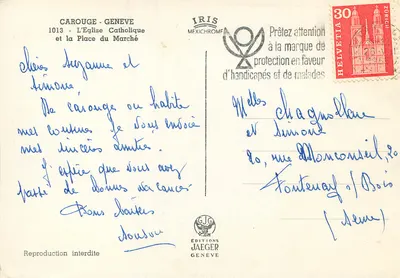 CAROUGE - GENEVE
1013 - L'Eglise Catholique
et la Place du Marché
IRIS
MEXICHROME
Prêtez attention
à la marque de
protection en faveur
d'handicapés et de malades
30
HELVETIA
ZÜRICH
Chères Suzanne et
Simone,
De Carouge où habite
mes cousines je vous envoie
mes sincères amitiés.
J'espère que vous avez
passé de bonnes vacances
Bons baisers
Melles
et Simone
20, rue Monconseil, 20
Fontenay s/Bois
(Seine)
EDITIONS
JAEGER
GENEVE
Reproduction interdite